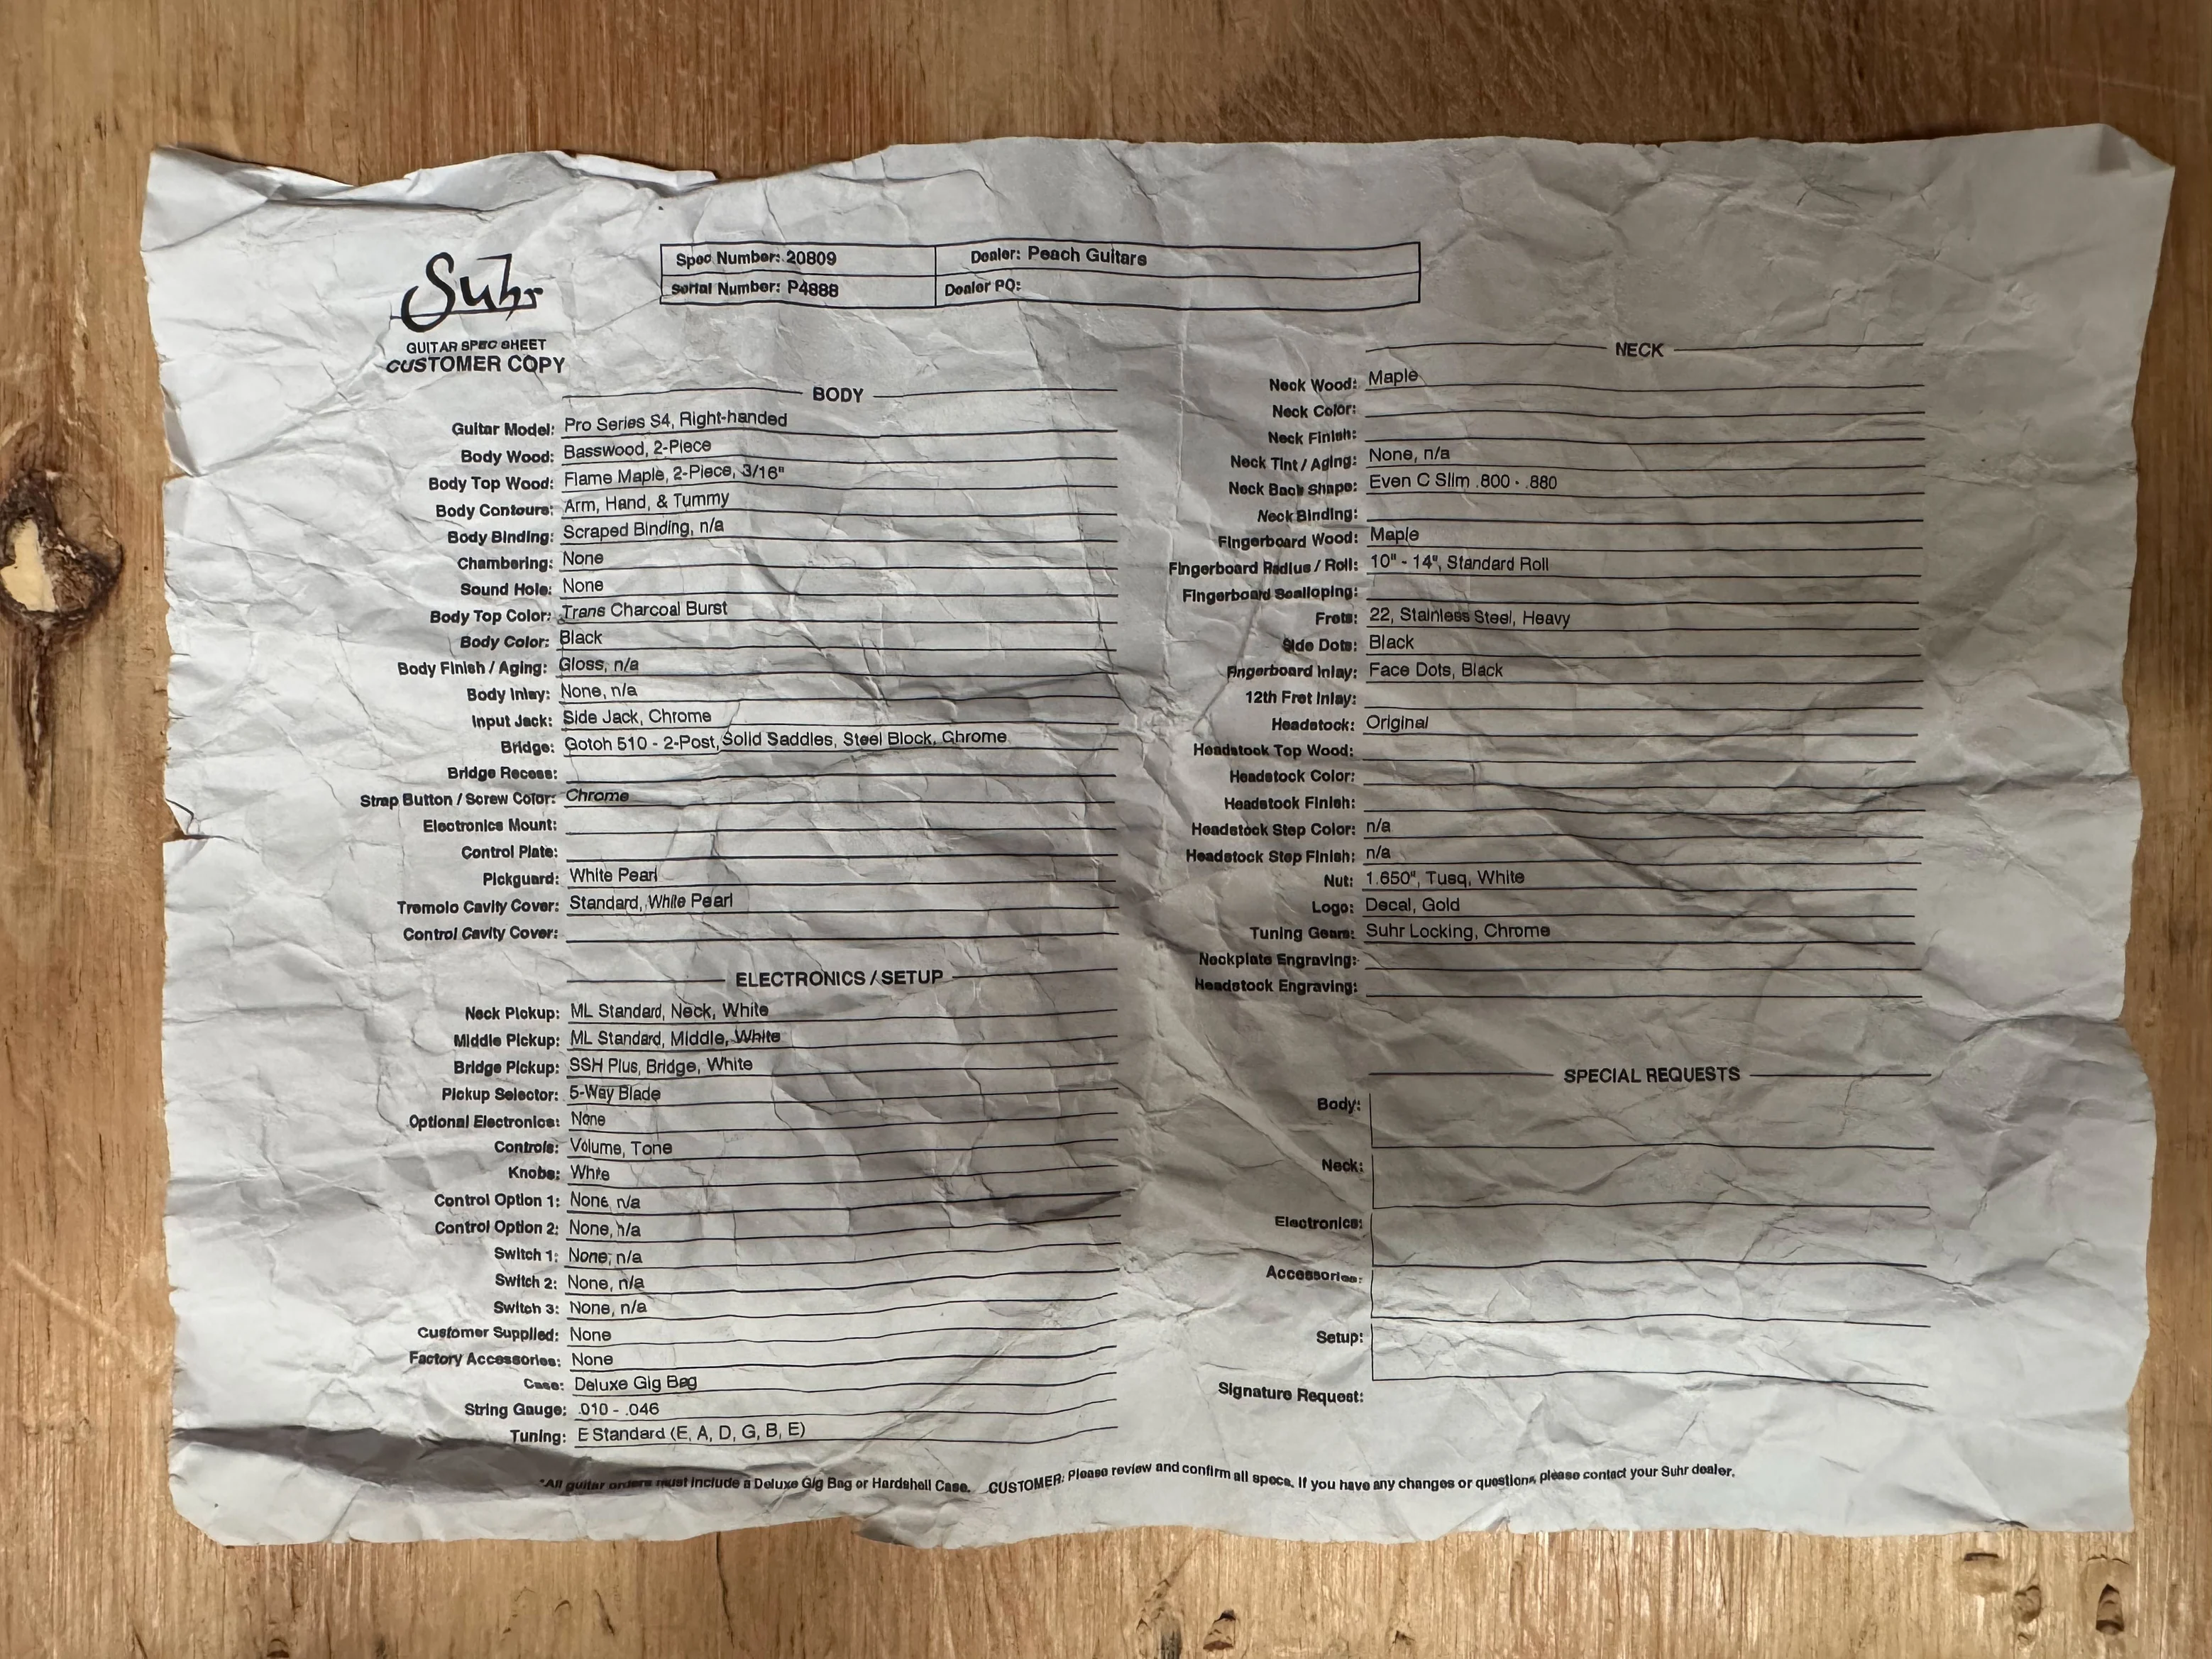 Suhr
GUITAR SPEC SHEET
CUSTOMER COPY
Spec Number: 20809
Dealer: Peach Guitars
Serial Number: P4888
Dealer PO:
BODY
Guitar Model: Pro Series S4, Right-handed
Body Wood: Basswood, 2-Piece
Body Top Wood: Flame Maple, 2-Piece, 3/16"
Body Contours: Arm, Hand, & Tummy
Body Binding: Scraped Binding, n/a
Chambering: None
Sound Hole: None
Body Top Color: Trans Charcoal Burst
Body Color: Black
Body Finish / Aging: Gloss, n/a
Body Inlay: None, n/a
Input Jack: Side Jack, Chrome
Bridge: Gotoh 510 - 2-Post, Solid Saddles, Steel Block, Chrome
Bridge Recess:
Strap Button / Screw Color: Chrome
Electronics Mount:
Control Plate:
Pickguard: White Pearl
Tremolo Cavity Cover: Standard, White Pearl
Control Cavity Cover:
ELECTRONICS / SETUP
Neck Pickup: ML Standard, Neck, White
Middle Pickup: ML Standard, Middle, White
Bridge Pickup: SSH Plus, Bridge, White
Pickup Selector: 5-Way Blade
Optional Electronics: None
Controls: Volume, Tone
Knobs: White
Control Option 1: None, n/a
Control Option 2: None, n/a
Switch 1: None, n/a
Switch 2: None, n/a
Switch 3: None, n/a
Customer Supplied: None
Factory Accessories: None
Case: Deluxe Gig Bag
String Gauge: .010 - .046
Tuning: E Standard (E, A, D, G, B, E)
NECK
Neck Wood: Maple
Neck Color:
Neck Finish:
Neck Tint / Aging: None, n/a
Neck Back Shape: Even C Slim .800 - .880
Neck Binding:
Fingerboard Wood: Maple
Fingerboard Radius / Roll: 10" - 14", Standard Roll
Fingerboard Scalloping:
Frets: 22, Stainless Steel, Heavy
Side Dots: Black
Fingerboard Inlay: Face Dots, Black
12th Fret Inlay:
Headstock: Original
Headstock Top Wood:
Headstock Color:
Headstock Finish:
Headstock Step Color: n/a
Headstock Step Finish: n/a
Nut: 1.650", Tusq, White
Logo: Decal, Gold
Tuning Gears: Suhr Locking, Chrome
Neckplate Engraving:
Headstock Engraving:
SPECIAL REQUESTS
Body:
Neck:
Electronics:
Accessories:
Setup:
Signature Request:
*All guitar orders must include a Deluxe Gig Bag or Hardshell Case. CUSTOMER: Please review and confirm all specs. If you have any changes or questions, please contact your Suhr dealer.